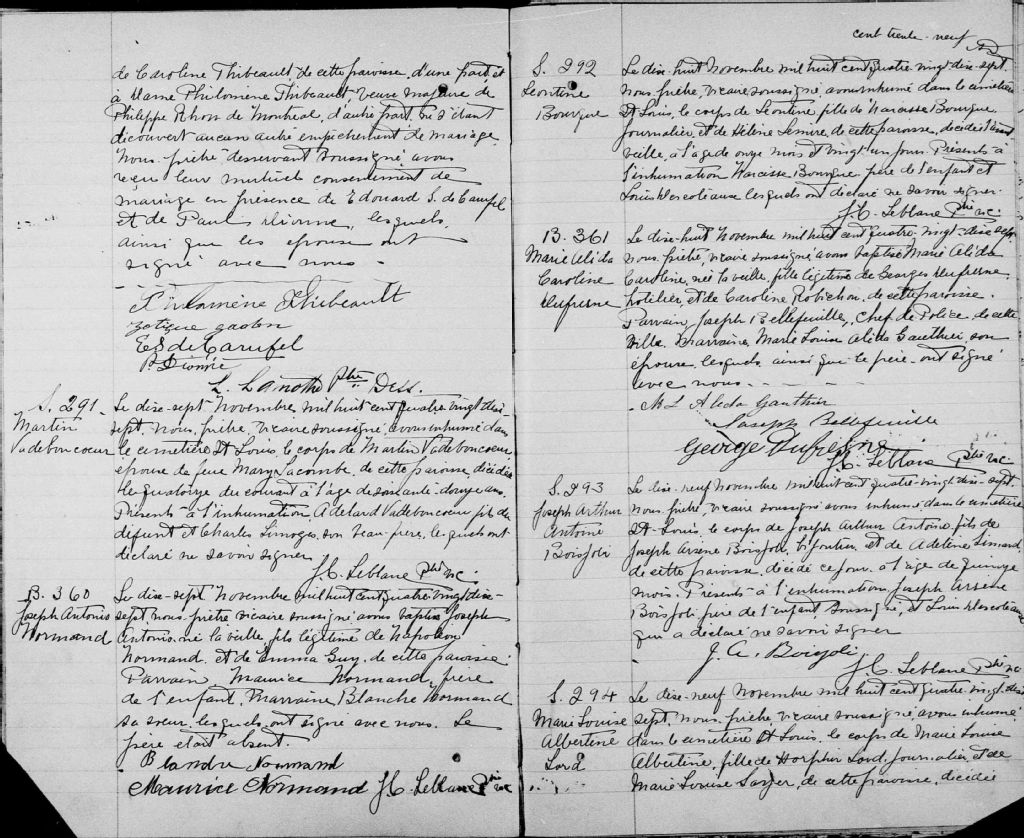 de Caroline Thibeault, de cette paroisse, d'une part, et
à Marie Philomène Thibeault veuve majeure de
Philippe Rhon de Montréal, d'autre part, ne s'étant
découvert aucun autre empêchement de mariage,
Nous prêtre desservant soussigné, avons
reçu leur mutuel consentement de
mariage en présence de Edouard S. de Carufel
et de Paul Dionne, lesquels
ainsi que les epoux ont
signé avec nous -
Philomène Thibeault
gaston
E S de Carufel
P. Dionne
L. Lamothe Ptre Dess.
S. 291
Martin
Vadeboncoeur
Le dix-sept Novembre mil huit cent quatre vingt dix-
sept, nous, prêtre, vicaire soussigné avons inhumé dans
le cimetière St Louis, le corps de Martin Vadeboncoeur
epoux de feue Mary Lacombe, de cette paroisse, décédé
le quatorze du courant à l'âge de soixante-douze ans.
Présents à l'inhumation, Adelard Vadeboncoeur fils du
défunt et Charles Limoges, son beau-frère, lesquels ont
déclaré ne savoir signer
J. C. Leblanc Ptre vic.
B. 360
Joseph Antonio
Normand
Le dix-sept Novembre mil huit cent quatre vingt dix-
sept nous prêtre vicaire soussigné avons baptisé Joseph
Antonio, né la veille, fils légitime de Napoléon
Normand, et de Emma Guy, de cette paroisse
Parrain, Maurice Normand, frère
de l'enfant, Marraine Blanche Normand
sa soeur, lesquels ont signé avec nous. Le
père était absent.
Blandre Normand
Maurice Normand J. C. Leblanc Ptre vic
cent trente-neuf
S. 292
Léontine
Bourque
Le dix-huit Novembre mil huit cent quatre-vingt-dix-sept
nous, prêtre, vicaire soussigné, avons inhumé dans le cimetière
St Louis, le corps de Léontine fille de Narcisse Bourque
journalier, et de Hélène Lemire, de cette paroisse, décédée l'avant
veille, à l'âge de onze mois et vingt-un jours. Présents à
l'inhumation Narcisse Bourque père de l'enfant et
Louis Descoteaux lesquels ont déclaré ne savoir signer.
J. C. Leblanc Ptre vic.
B. 361
Marie Alida
Caroline
Dufresne
Le dix-huit Novembre mil huit cent quatre-vingt-dix-sept
nous prêtre, vicaire soussigné, avons baptisé Marie Alida
Caroline, née la veille, fille légitime de Georges Dufresne
hotelier, et de Caroline Robichon, de cette paroisse.
Parrain, Joseph Bellefeuille, Chef de Police, de cette
ville. Marraine, Marie Louise Alida Gauthier son
épouse, lesquels ainsi que le père ont signé
avec nous
M L Alida Gauthier
Joseph Bellefeuille
George Dufresne
J. C. Leblanc Ptre vic.
S. 293
Joseph Arthur
Antoine
Boisjoli
Le dix-neuf Novembre mil huit cent quatre vingt dix-sept
nous prêtre, vicaire soussigné avons inhumé dans le cimetière
St-Louis, le corps de Joseph Arthur Antoine, fils de
Joseph Arsène Boisjoli, bijoutier, et de Adeline Simard,
de cette paroisse, décédé ce jour, à l'âge de quinze
mois. Présents à l'inhumation Joseph Arsène
Boisjoli père de l'enfant, soussigné, et Louis Descoteaux
qui a déclaré ne savoir signer
J. A. Boisjoli
J. C. Leblanc Ptre vic
S. 294
Marie Louise
Albertine
Lord
Le dix-neuf Novembre mil huit cent quatre-vingt-dix
sept, nous, prêtre, vicaire soussigné, avons inhumé
dans le cimetière St Louis, le corps de Marie Louise
Albertine, fille de Lord, journalier, et de
Marie Louise de cette paroisse, décédée